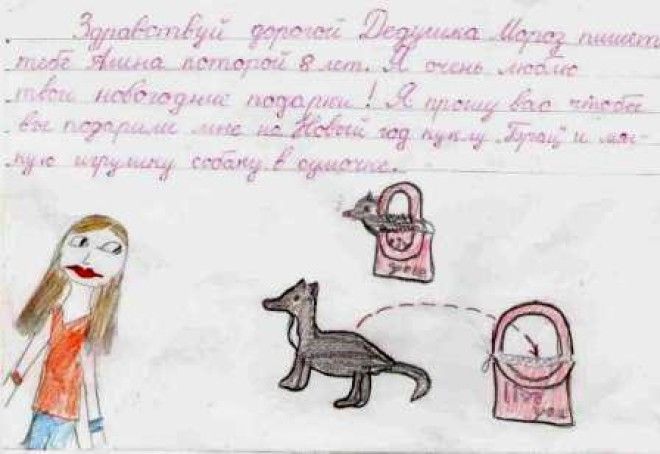 Здравствуй дорогой Дедушка Мороз пишет
тебе Алина которой 8 лет. Я очень люблю
твои новогодние подарки! Я прошу вас чтобы
вы подарили мне на Новый год куклу и мяг-
кую игрушку собаку в сумочке.
you